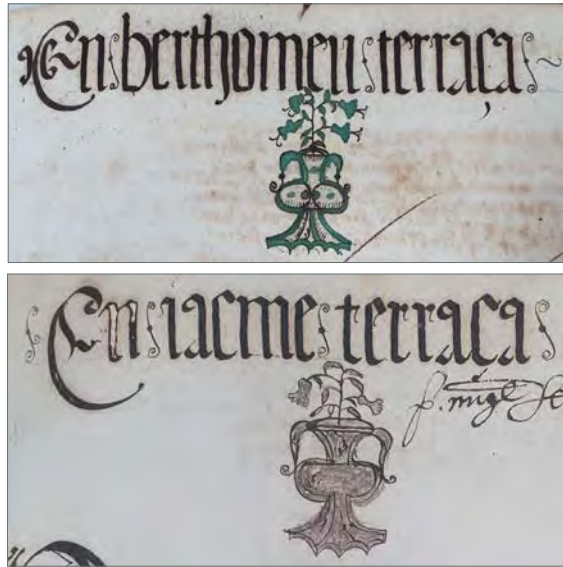 En berthomeu terraça
En iacme terraça